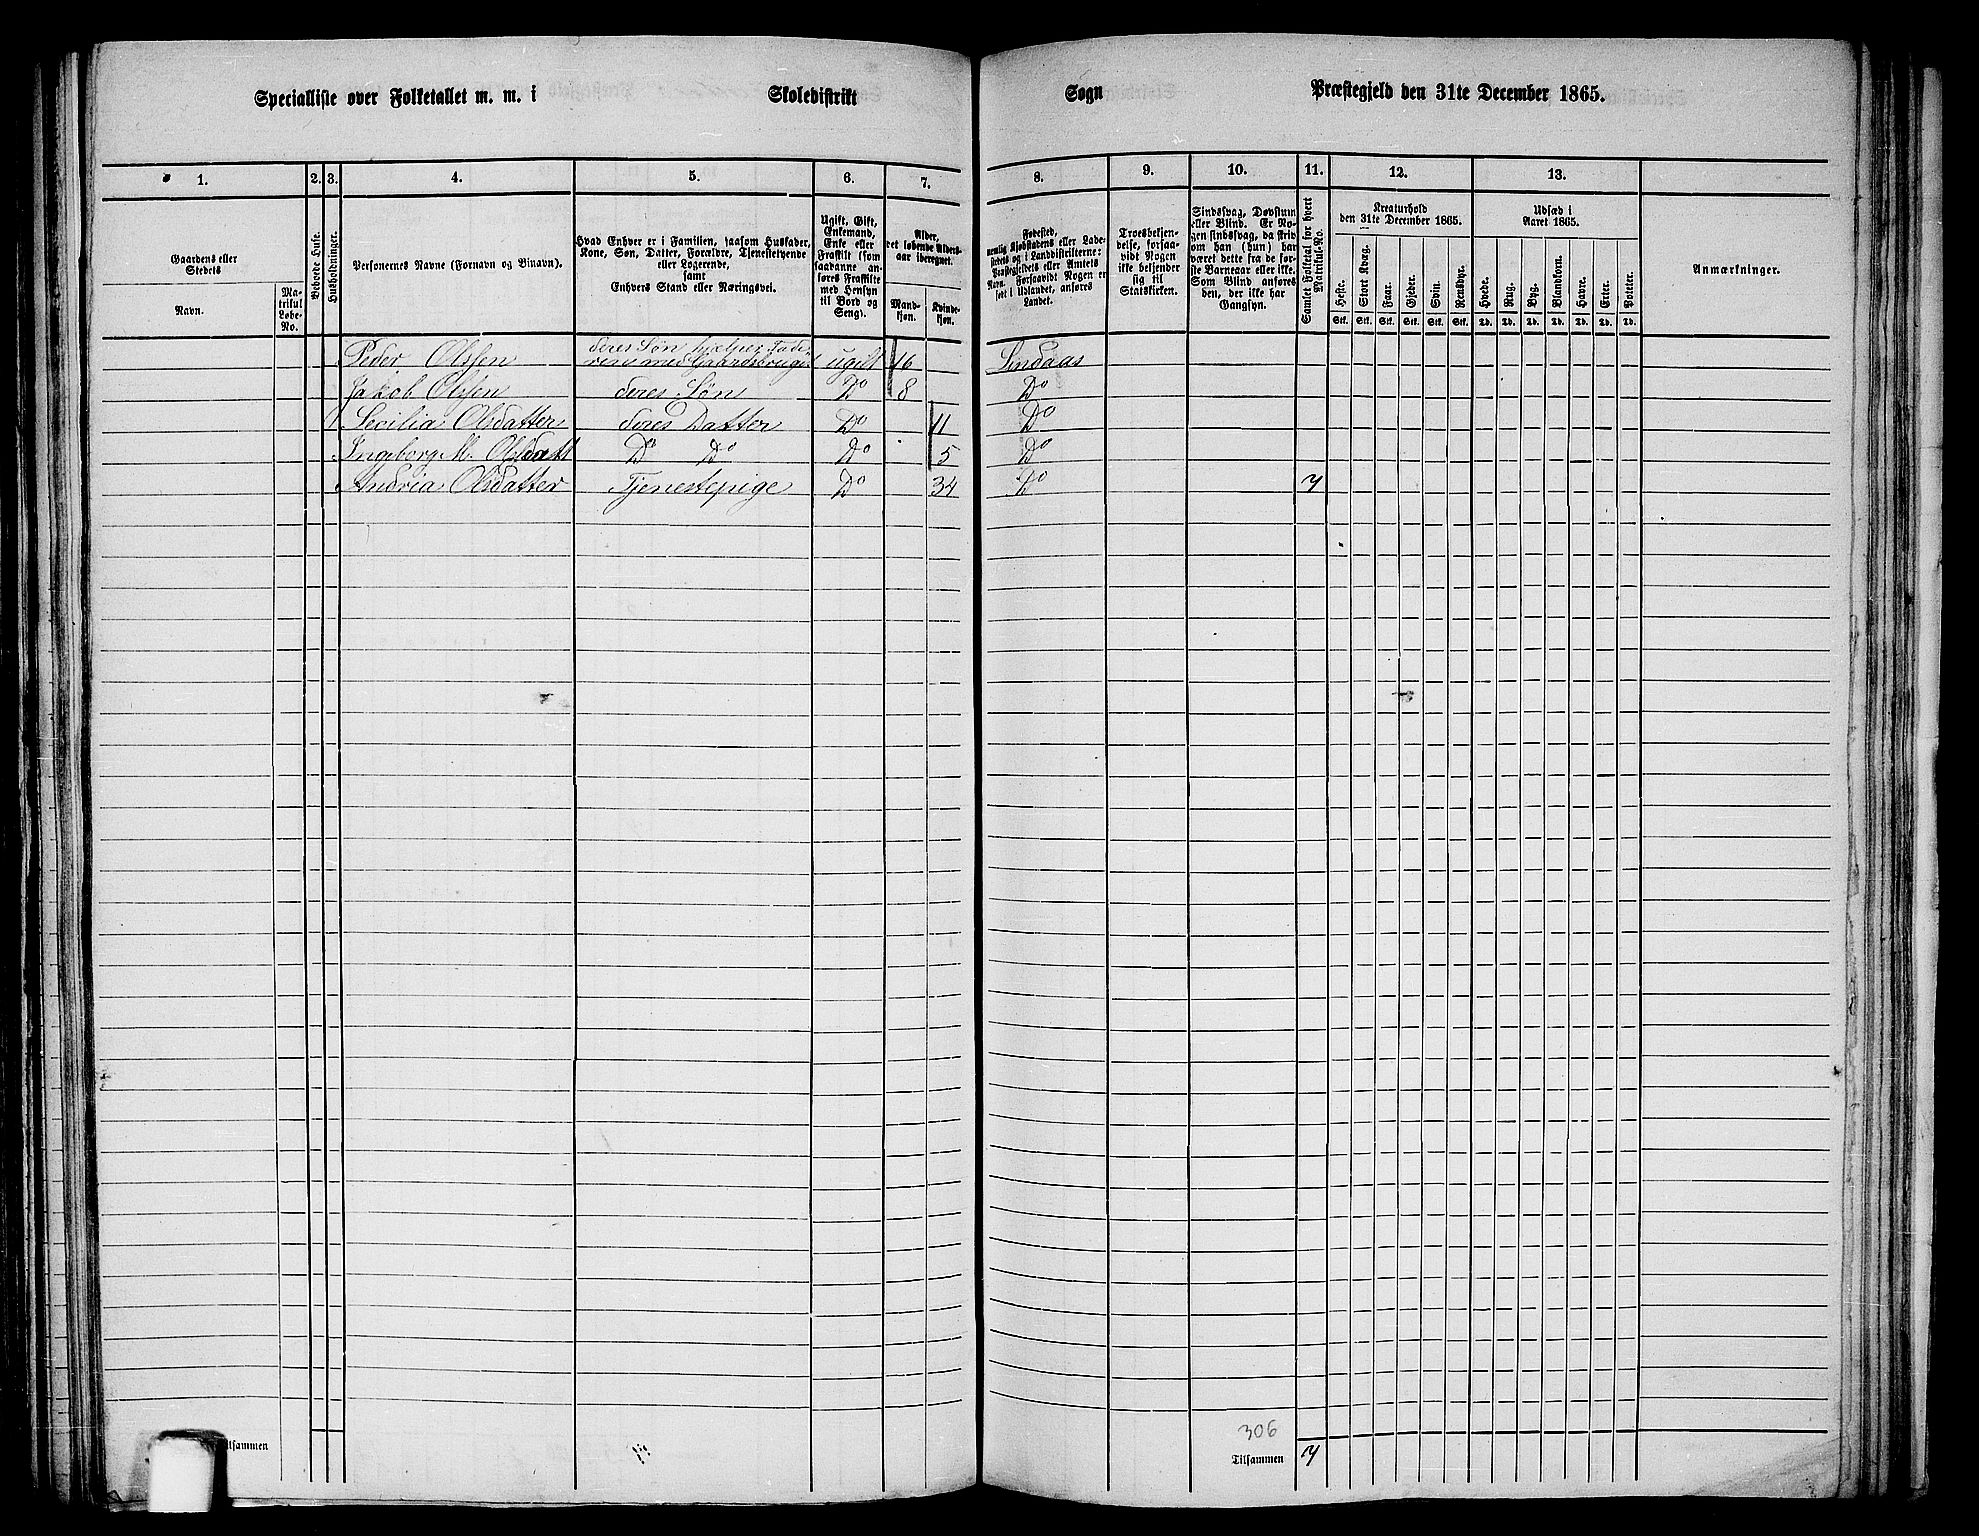 Specialliste over Folketallet m. m. i Skoledistrikt Sogn Præstegjeld den 31te December 1865.
1. 2. 3. 4. 5. 6. 7. 8. 9. 10. 11. 12. 13.
Gaardens eller
Stedets
Navn.
Ma-
trikul
Løbe-
No.
Beboede Huse.
Husholdninger.
Personernes Navne (Fornavn og Binavn).
Hvad Enhver er i Familien, saasom Husfader,
Kone, Søn, Datter, Forældre, Tjenestetyende
eller Logerende,
samt
Enhvers Stand eller Næringsvei.
Ugift, Gift,
Enkemand,
Enke eller
Fraskilt (som
saadanne an-
føres Fraskilte
med Hensyn
til Bord og
Seng).
Alder,
det løbende Alders-
aar iberegnet.
Mand-
kjøn.
Kvinde-
kjøn.
Fødested,
nemlig Kjøbstadens eller Lade-
stedets og i Landdistrikterne:
Præstegjeldets eller Amtets
Navn. Forsaavidt Nogen er
født i Udlandet, anføres
Landet.
Troesbekjen-
delse, forsaa-
vidt Nogen
ikke bekjender
sig til
Statskirken.
Sindssvag, Døvstum
eller Blind. Er No-
gen sindssvag, da skriv
om han (hun) har
været dette fra de før-
ste Barneaar eller ikke.
Som Blind anføres
den, der ikke har
Gangsyn.
Samlet Folketal for hvert
Matrikul-No.
Kreaturhold
den 31te December 1865.
Heste.
Stort Kvæg.
Faar.
Gjeder.
Svin.
Rensdyr.
Stk. Stk. Stk. Stk. Stk. Stk.
Udsæd i
Aaret 1865.
Hvede.
Rug.
Byg.
Blandkorn.
Havre.
Erter.
Poteter.
Td. Td. Td. Td. Td. Td. Td.
Anmærkninger.
Peder Olssen deres Søn hjælper Fade-
ren med Gaardsbruget ugift 16 Lindaas
Jakob Olssen deres Søn Do 8 Do
Secilia Olsdatter deres Datter Do 11 Do
Ingeborg M. Olsdatt Do Do Do 5 Do
Andria Olsdatter Tjenestepige Do 34 Do 7
306
Tilsammen 7